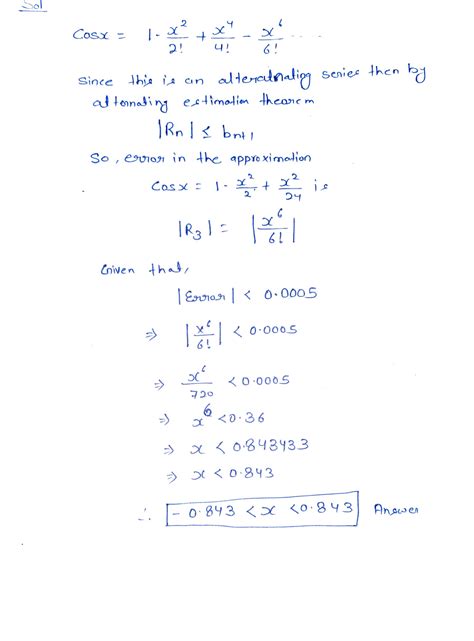 Sol
Cosx = 1 - x²/2! + x⁴/4! - x⁶/6! ....
Since this is an alteratnating series then by
alternating estimation theorem
|Rn| ≤ bn+1
So, error in the approximation
Cosx = 1 - x²/2 + x²/24 is
|R3| = |x⁶/6!|
Given that,
|Error| < 0.0005
⇒ |x⁶/6!| < 0.0005
⇒ x⁶/720 < 0.0005
⇒ x⁶ < 0.36
⇒ x < 0.843433
⇒ x < 0.843
∴ - 0.843 < x < 0.843 Answer